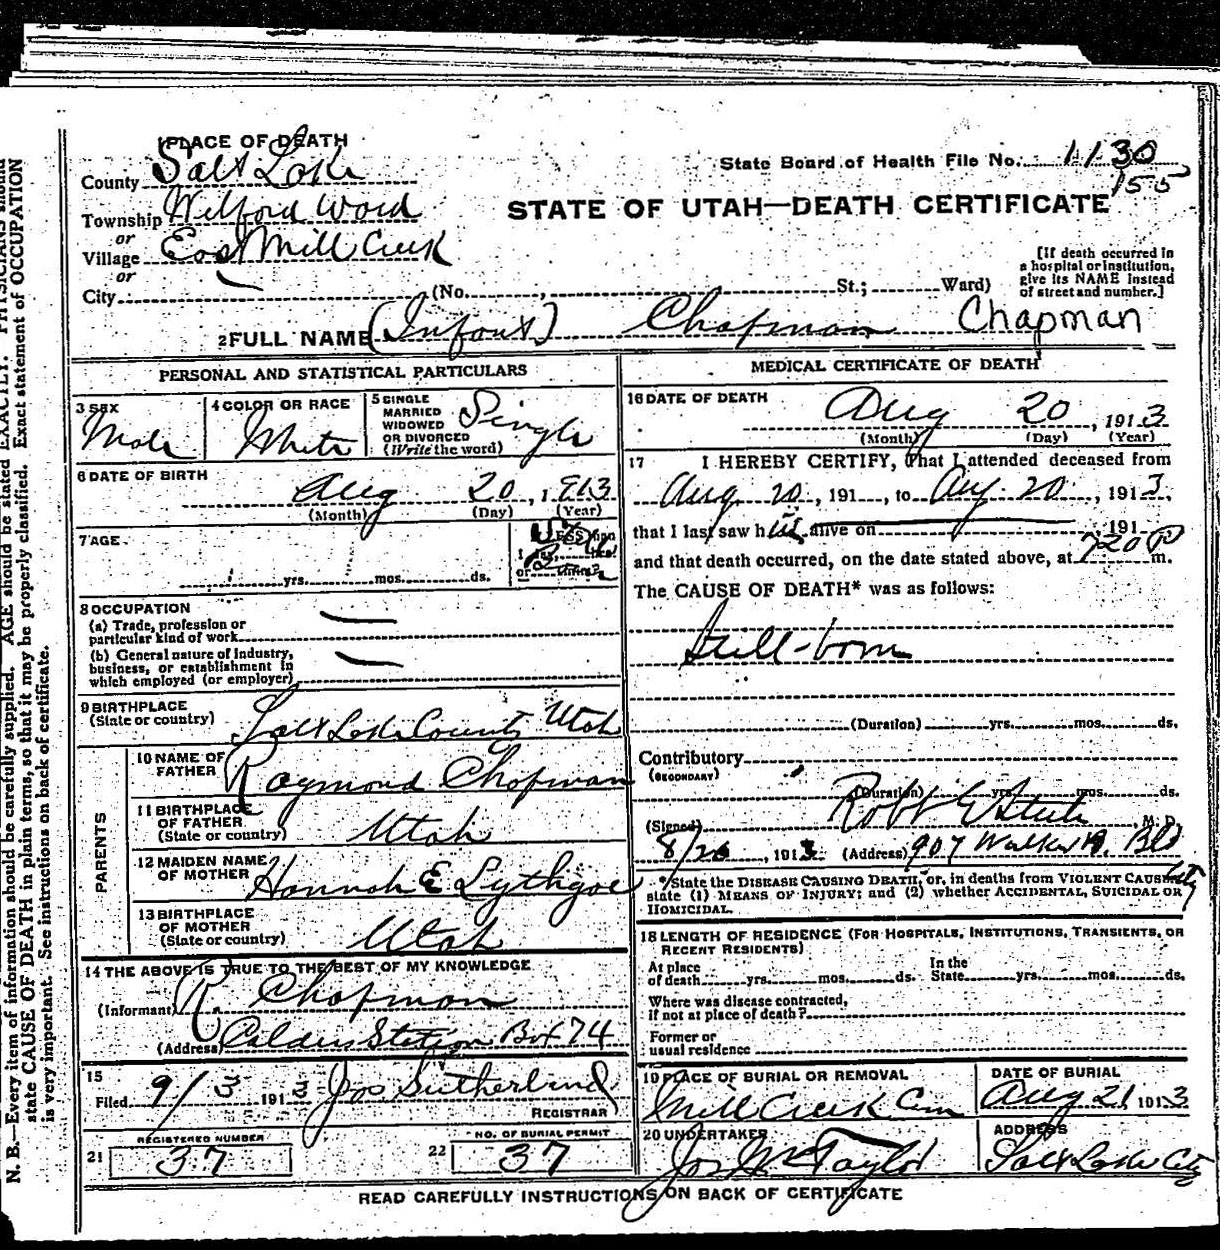 1 PLACE OF DEATH
County Salt Lake
State Board of Health File No. 1130
155
Township Wilford Ward
STATE OF UTAH—DEATH CERTIFICATE
or
Village East Mill Creek
or
City (No. , St.; Ward)
[If death occurred in
a hospital or institution,
give its NAME instead
of street and number.]
2 FULL NAME (Infant) Chapman Chapman
PERSONAL AND STATISTICAL PARTICULARS
3 SEX
Male
4 COLOR OR RACE
White
5 SINGLE
MARRIED
WIDOWED
OR DIVORCED
(Write the word)
Single
6 DATE OF BIRTH
Aug 20, 1913
(Month) (Day) (Year)
7 AGE
yrs. mos. ds.
8 OCCUPATION
(a) Trade, profession or
particular kind of work
(b) General nature of industry,
business, or establishment in
which employed (or employer)
9 BIRTHPLACE
(State or country) Salt Lake County Utah
PARENTS
10 NAME OF
FATHER Raymond Chapman
11 BIRTHPLACE
OF FATHER
(State or country) Utah
12 MAIDEN NAME
OF MOTHER Hannah E Lythgoe
13 BIRTHPLACE
OF MOTHER
(State or country) Utah
14 THE ABOVE IS TRUE TO THE BEST OF MY KNOWLEDGE
(Informant) R. Chapman
(Address) Calders Station Box 74
15
Filed 9/3 1913 Jos Sutherland
REGISTRAR
REGISTERED NUMBER
21 37
NO. OF BURIAL PERMIT
22 37
MEDICAL CERTIFICATE OF DEATH
16 DATE OF DEATH
Aug 20, 1913
(Month) (Day) (Year)
17 I HEREBY CERTIFY, That I attended deceased from
Aug 20, 191 , to Aug 20, 1913,
that I last saw h alive on 191
and that death occurred, on the date stated above, at 720 P m.
The CAUSE OF DEATH* was as follows:
Still-born
(Duration) yrs. mos. ds.
Contributory
(SECONDARY)
(Duration) yrs. mos. ds.
(Signed) Robt M. D.
8/26, 1913 (Address) 907 Walker B. Bld
City
*State the DISEASE CAUSING DEATH, or, in deaths from VIOLENT CAUSES,
state (1) MEANS OF INJURY; and (2) whether ACCIDENTAL, SUICIDAL OR
HOMICIDAL.
18 LENGTH OF RESIDENCE (FOR HOSPITALS, INSTITUTIONS, TRANSIENTS, OR
RECENT RESIDENTS)
At place In the
of death yrs. mos. ds. State yrs. mos. ds.
Where was disease contracted,
if not at place of death?
Former or
usual residence
19 PLACE OF BURIAL OR REMOVAL
Mill Creek Cem
DATE OF BURIAL
Aug 21, 1913
20 UNDERTAKER
Jos Wm Taylor
ADDRESS
Salt Lake City
READ CAREFULLY INSTRUCTIONS ON BACK OF CERTIFICATE
N. B.—Every item of information should be carefully supplied. AGE should be stated EXACTLY. PHYSICIANS should
state CAUSE OF DEATH in plain terms, so that it may be properly classified. Exact statement of OCCUPATION
is very important. See instructions on back of certificate.